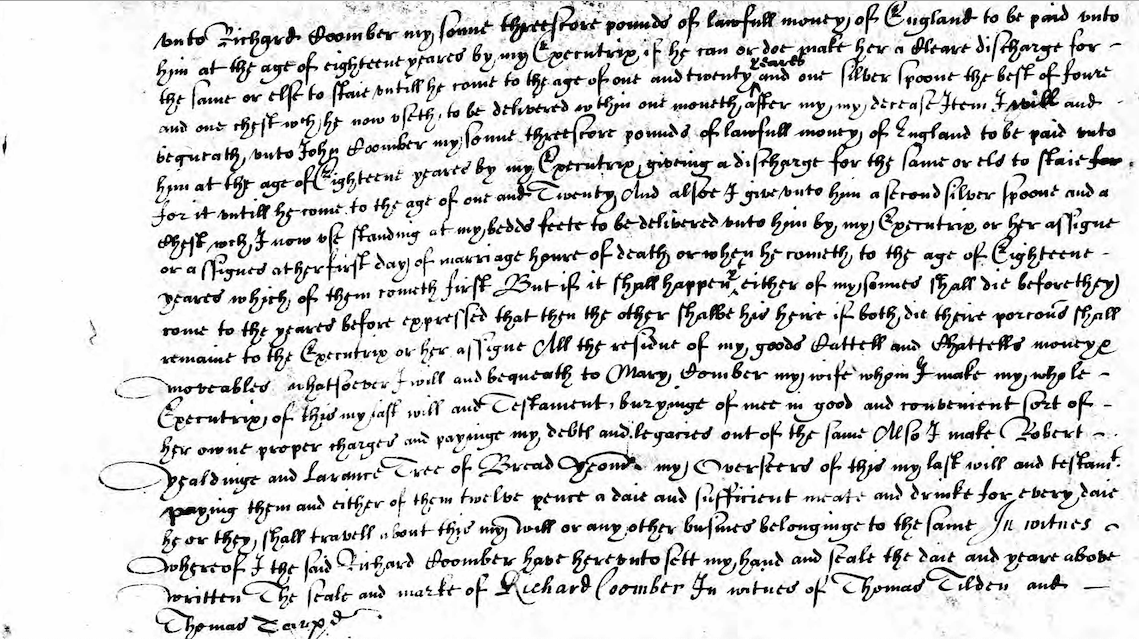 vnto Richard Coomber my sonne threescore pounds of lawfull money of England to be paid vnto
him at the age of eighteene yeares by my Executrix if he can or doe make her a Cleare discharge for
the same or else to staie vntill he come to the age of one and twenty yeares and one silver spoone the best of foure
and one chest wch he now vseth to be delivered wthin one moneth after my my decease Item I will and
bequeath vnto John Coomber my sonne threescore pounds of lawfull money of England to be paid vnto
him at the age of Eighteene yeares by my Executrix giving a discharge for the same or els to staie for
for it vntill he come to the age of one and Twenty And alsoe I give vnto him a second silver spoone and a
Chest wch I now vse standing at my bedds feete to be delivered vnto him by my Executrix or her assigne
or assignes at her first day of marriage houre of death or when he cometh to the age of Eighteene
yeares which of them cometh first But if it shall happen either of my sonnes shall die before they
come to the yeares before expressed that then the other shalbe his heire if both die theire porcons shall
remaine to the Executrix or her assigne All the residue of my goods Cattell and Chattells money
moveables whatsoever I will and bequeath to Mary Comber my wife whom I make my whole
Executrix of this my last will and Testament buryinge of mee in good and convenient sort of
her owne proper charges and payinge my debts and legacies out of the same Also I make Robert
yealdinge and Larance Tree of Bread my Overseers of this my last will and testamt.
paying them and either of them twelve pence a daie and sufficient meate and drinke for every daie
he or they shall travell about this my will or any other busines belonginge to the same In witnes
whereof I the said Richard Coomber have herevnto sett my hand and seale the daie and yeare above
written The seale and marke of Richard Coomber In witnes of Thomas Tilden and
Thomas